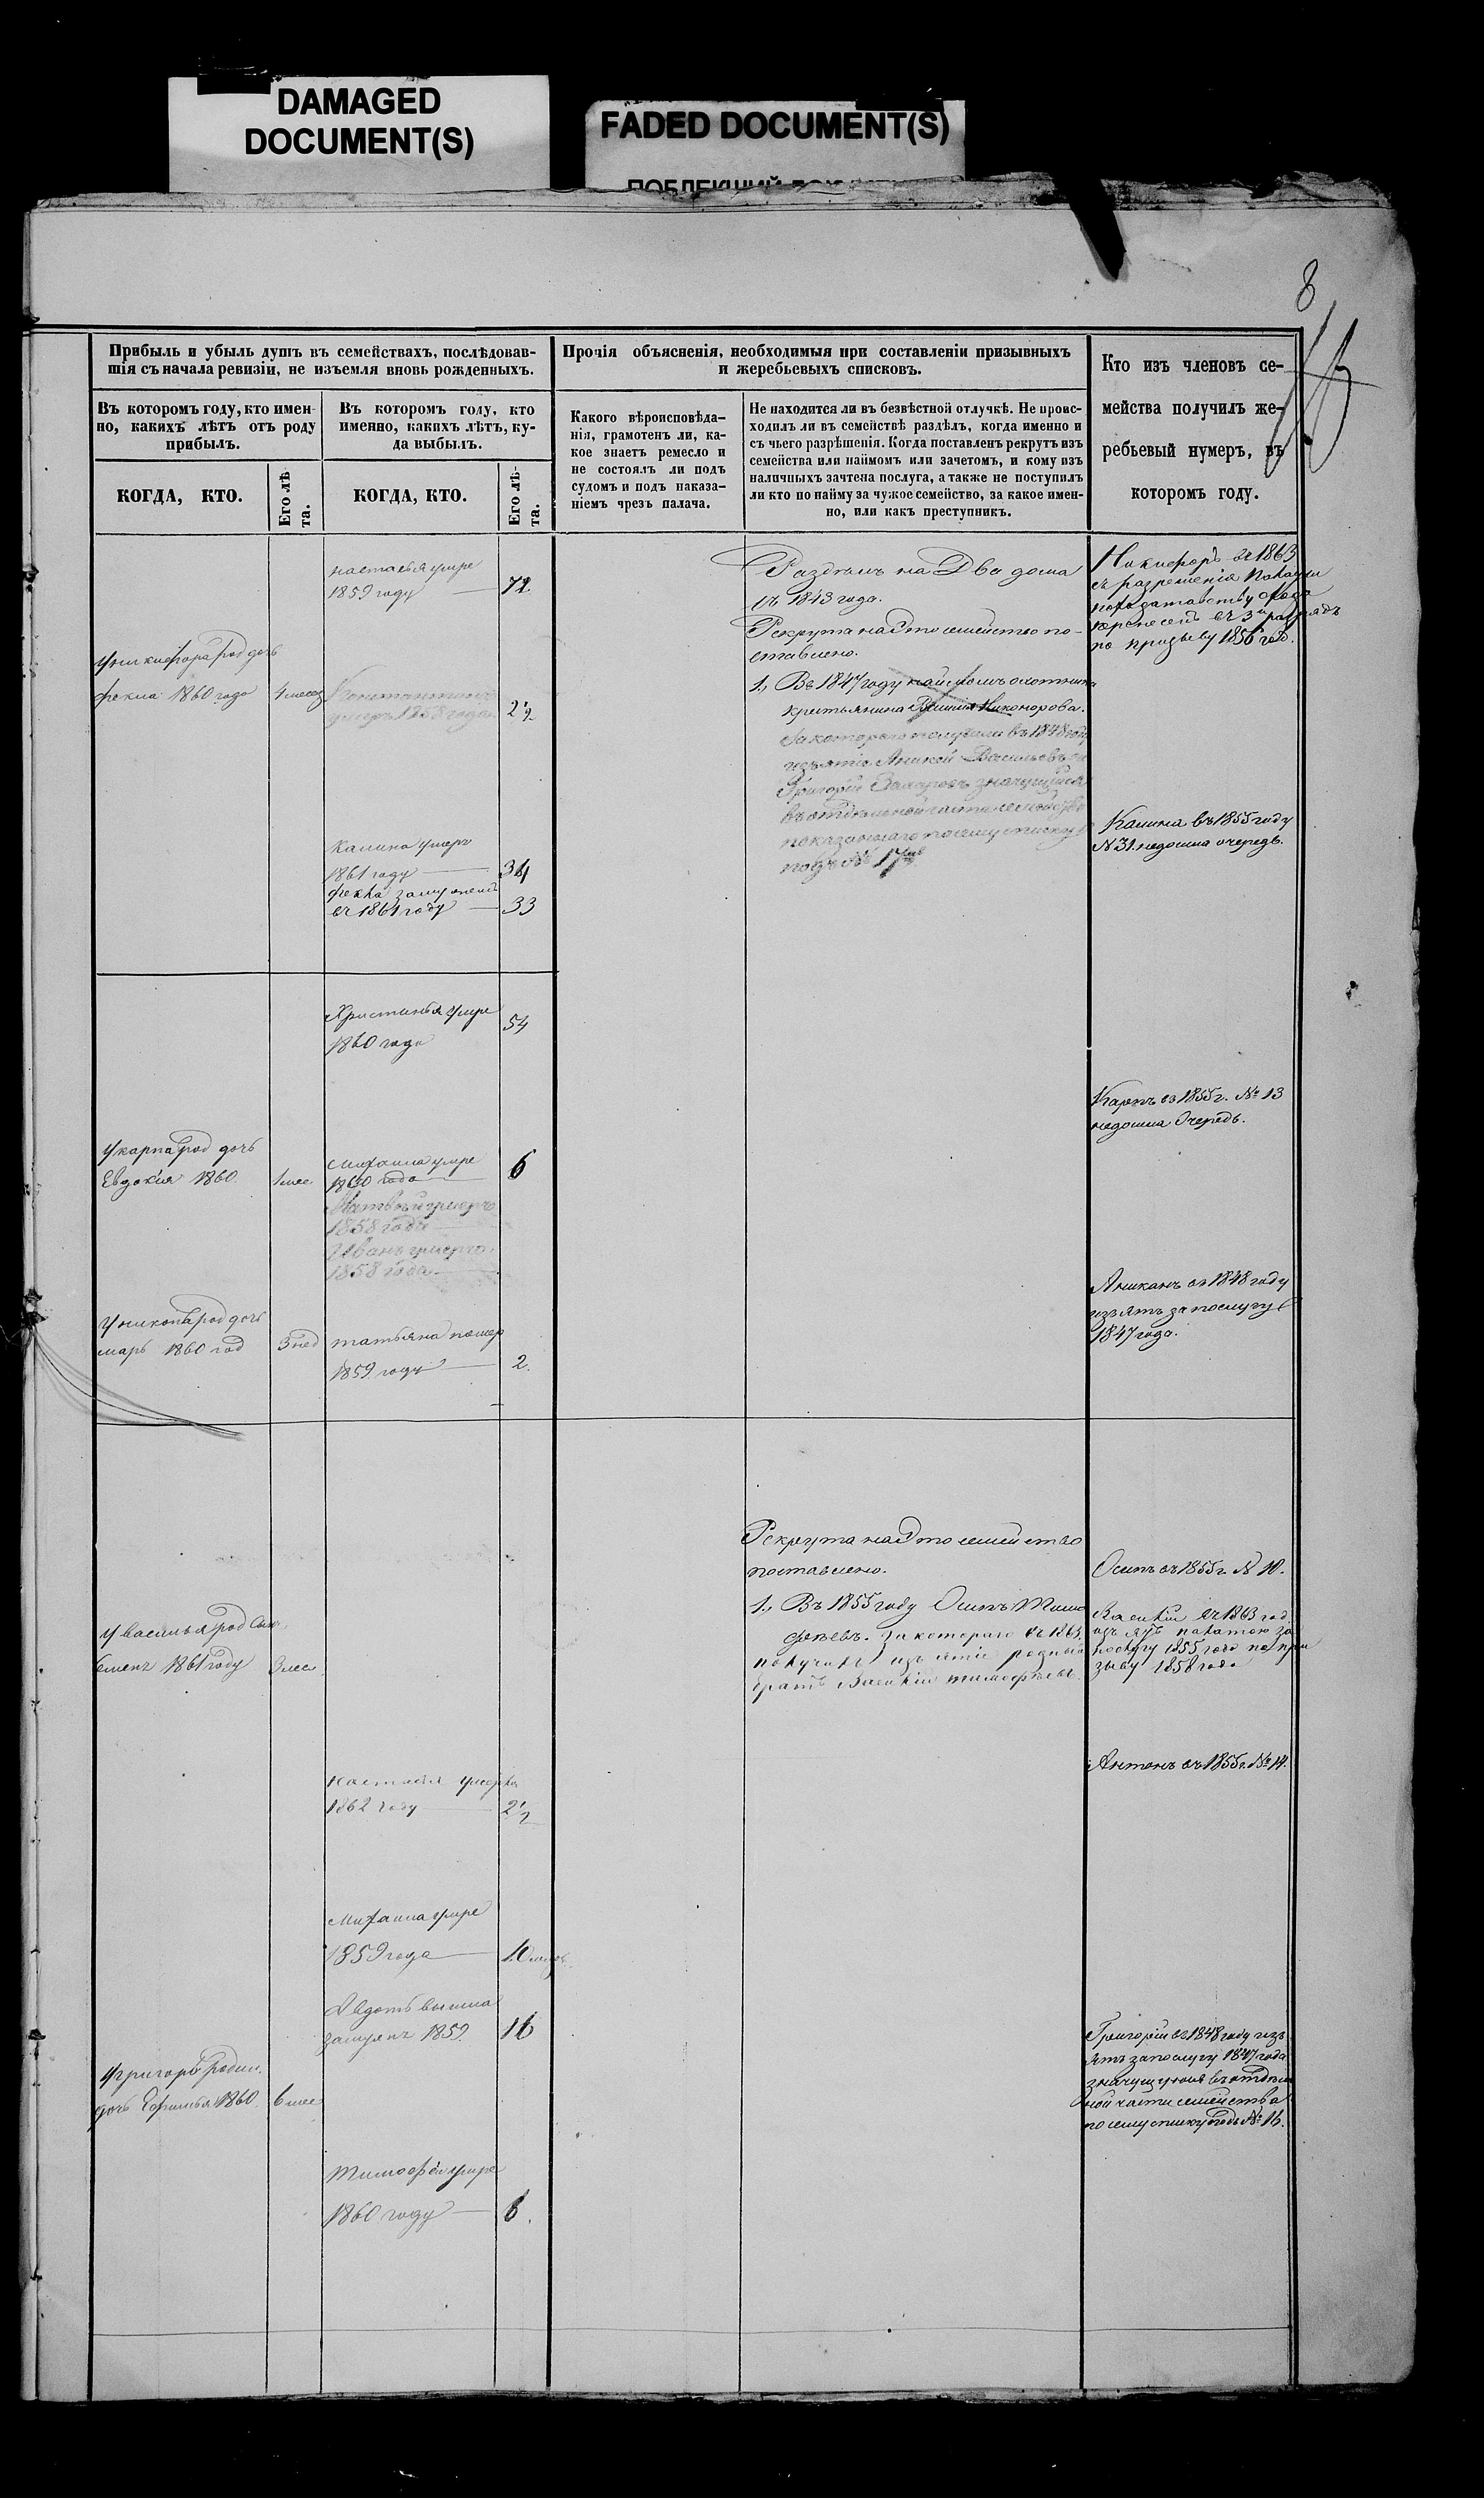 DAMAGED
DOCUMENT(S)
FADED DOCUMENT(S)
8
Прибыль и убыль душъ въ семействахъ, послѣдовав-
шія съ начала ревизіи, не изъемля вновь рожденныхъ.
Въ которомъ году, кто имен-
но, какихъ лѣтъ отъ роду
прибылъ.
КОГДА, КТО.
Его лѣ
та.
Въ которомъ году, кто
именно, какихъ лѣтъ, ку-
да выбылъ.
КОГДА, КТО.
Его лѣ-
та.
Прочія объясненія, необходимыя при составленіи призывныхъ
и жеребьевыхъ списковъ.
Какого вѣроисповѣда-
нія, грамотенъ ли, ка-
кое знаетъ ремесло и
не состоялъ ли подъ
судомъ и подъ наказа-
ніемъ чрезъ палача.
Не находится ли въ безвѣстной отлучкѣ. Не проис-
ходилъ ли въ семействѣ раздѣлъ, когда именно и
съ чьего разрѣшенія. Когда поставленъ рекрутъ изъ
семейства или наймомъ или зачетомъ, и кому изъ
наличныхъ зачтена послуга, а также не поступилъ
ли кто по найму за чужое семейство, за какое имен-
но, или какъ преступникъ.
Кто изъ членовъ се-
мейства получилъ же-
ребьевый нумеръ, въ
которомъ году.
настасья умре
1859 году 72
Раздѣлъ на Два дома
съ 1843 года.
Рекрута на Это семейство по-
ставлено.
1., Въ 1847 году наймомъ охотника
крестьянина Никонорова.
За котораго получили въ 1848 году
изъятіе Аникой Васильевъ и
Григорій значущійся
въ отдѣльной части семейства
показаннаго по сему списку
подъ № 17
Никифоръ въ 1863
съ разрешенія Палаты
перенесенъ въ 3й разрядъ
по призыву 1856 год.
У никифора род дочь
фекла 1860 года 4 месец
Константинъ
умеръ 1858 года 2 1/2
Калина умеръ
1861 году 34
фекла замуж
въ 1861 году 33
Калина въ 1855 году
N 31. недошла очередь.
Христинья умре
1860 года 54
Карпъ въ 1855 г. № 13
недошла Очередь.
У карпа род дочь
Евдокія 1860. 1 мес
Михаила умре
1860 года 6
Матвѣй умеръ
1858 года
Иванъ умеръ
1858 года.
Аниканъ въ 1848 году
изъятъ за послугу
1847 года.
У никона род дочь
марь 1860 год 3 нед
татьяна помер
1859 году 2.
Рекрута на Это семейство
поставлено.
1., Въ 1855 году Осипъ Тимо
феевъ. За котораго въ 1863
получилъ изъятіе родный
братъ Василій тимофѣевъ
Осипъ въ 1855 г. N 10.
Василій въ 1863 год
изъятъ палатою за
послугу 1855 года по при
зыву 1858 года
У василья род Сынъ
Семенъ 1861 году 3 мес
Антонъ въ 1855 г. № 14.
настасья умерла
1862 году 2 1/2
Михаила умре
1859 года 10
Авдотья вышла
замужъ 1859. 16
У григорья родил.
дочь Ефимья 1860. 6 мес
Григорій въ 1848 году изъ
ятъ за послугу 1847 года
значущуюся въ отдѣль
ной части семейства
по сему списку подъ № 16.
Тимофѣй умре
1860 году 6.